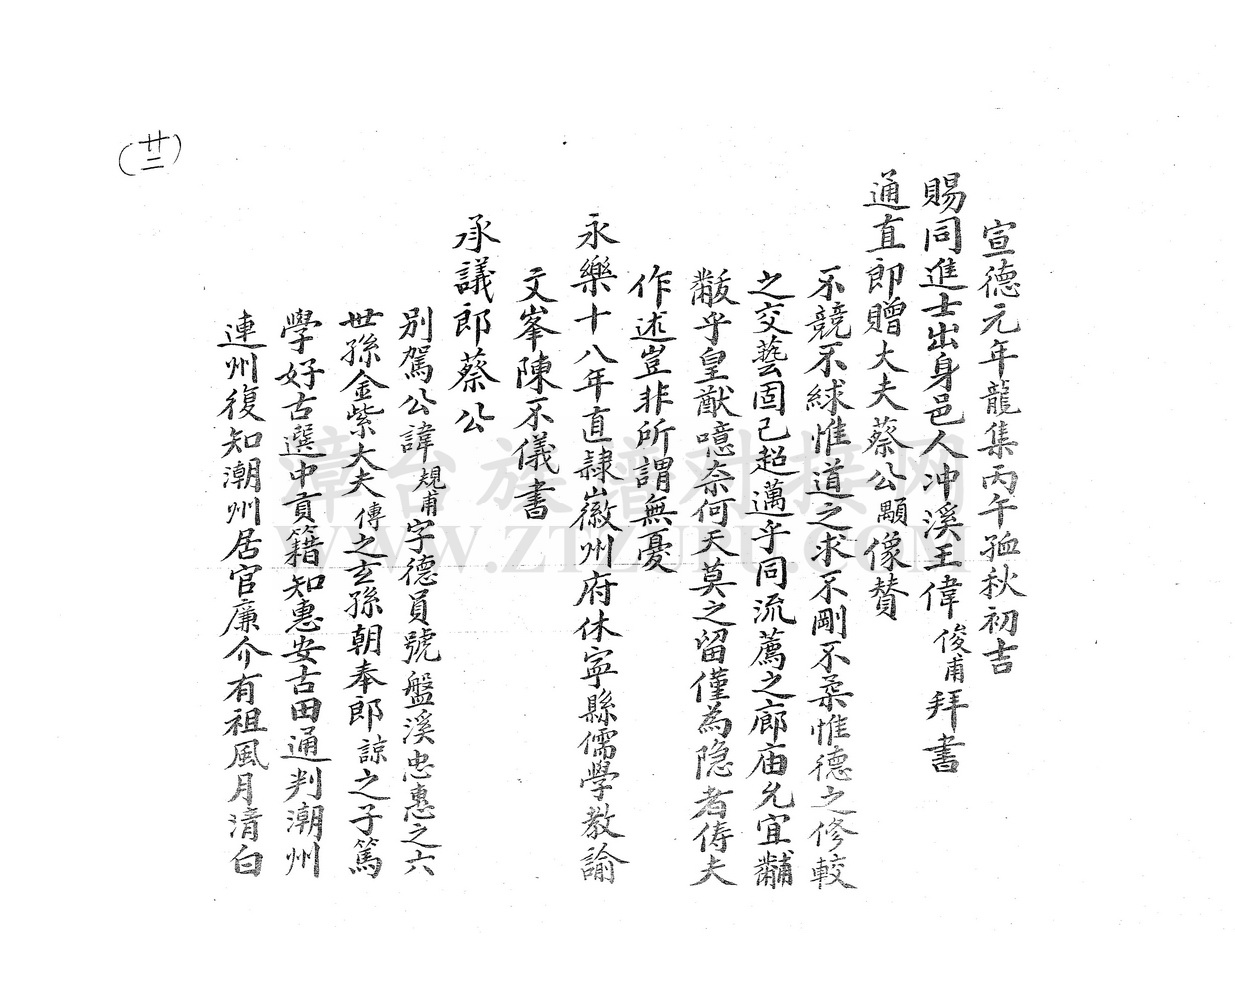 宣德元年龍集丙午孤秋初吉
賜同進士出身邑人冲溪王偉俊甫拜書
通直郎贈大夫蔡公顒像贊
不競不絿惟道之求不剛不柔惟德之修較
之交藝固己超邁乎同流薦之廊庙允宜黼
黻乎皇猷噫奈何天莫之留僅為隐者俦夫
作述豈非所謂無憂
永樂十八年直隷徽州府休寧縣儒學教諭
文峯陳不儀書
承議郎蔡公
別駕公諱規甫字德員號盤溪忠惠之六
世孫金紫大夫傳之玄孫朝奉郎諒之子篤
學好古選中貢籍知惠安古田通判潮州
連州復知潮州居官廉介有祖風月清白
(廿二)
漳台族谱对接网
WWW.ZTZUPU.COM